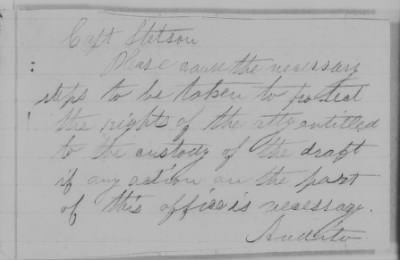 Capt Stetson
Please cause the necessary
steps to be taken to protect
the right of the atty entitled
to the custody of the draft
if any action on the part
of this office is necessary.
Auditor